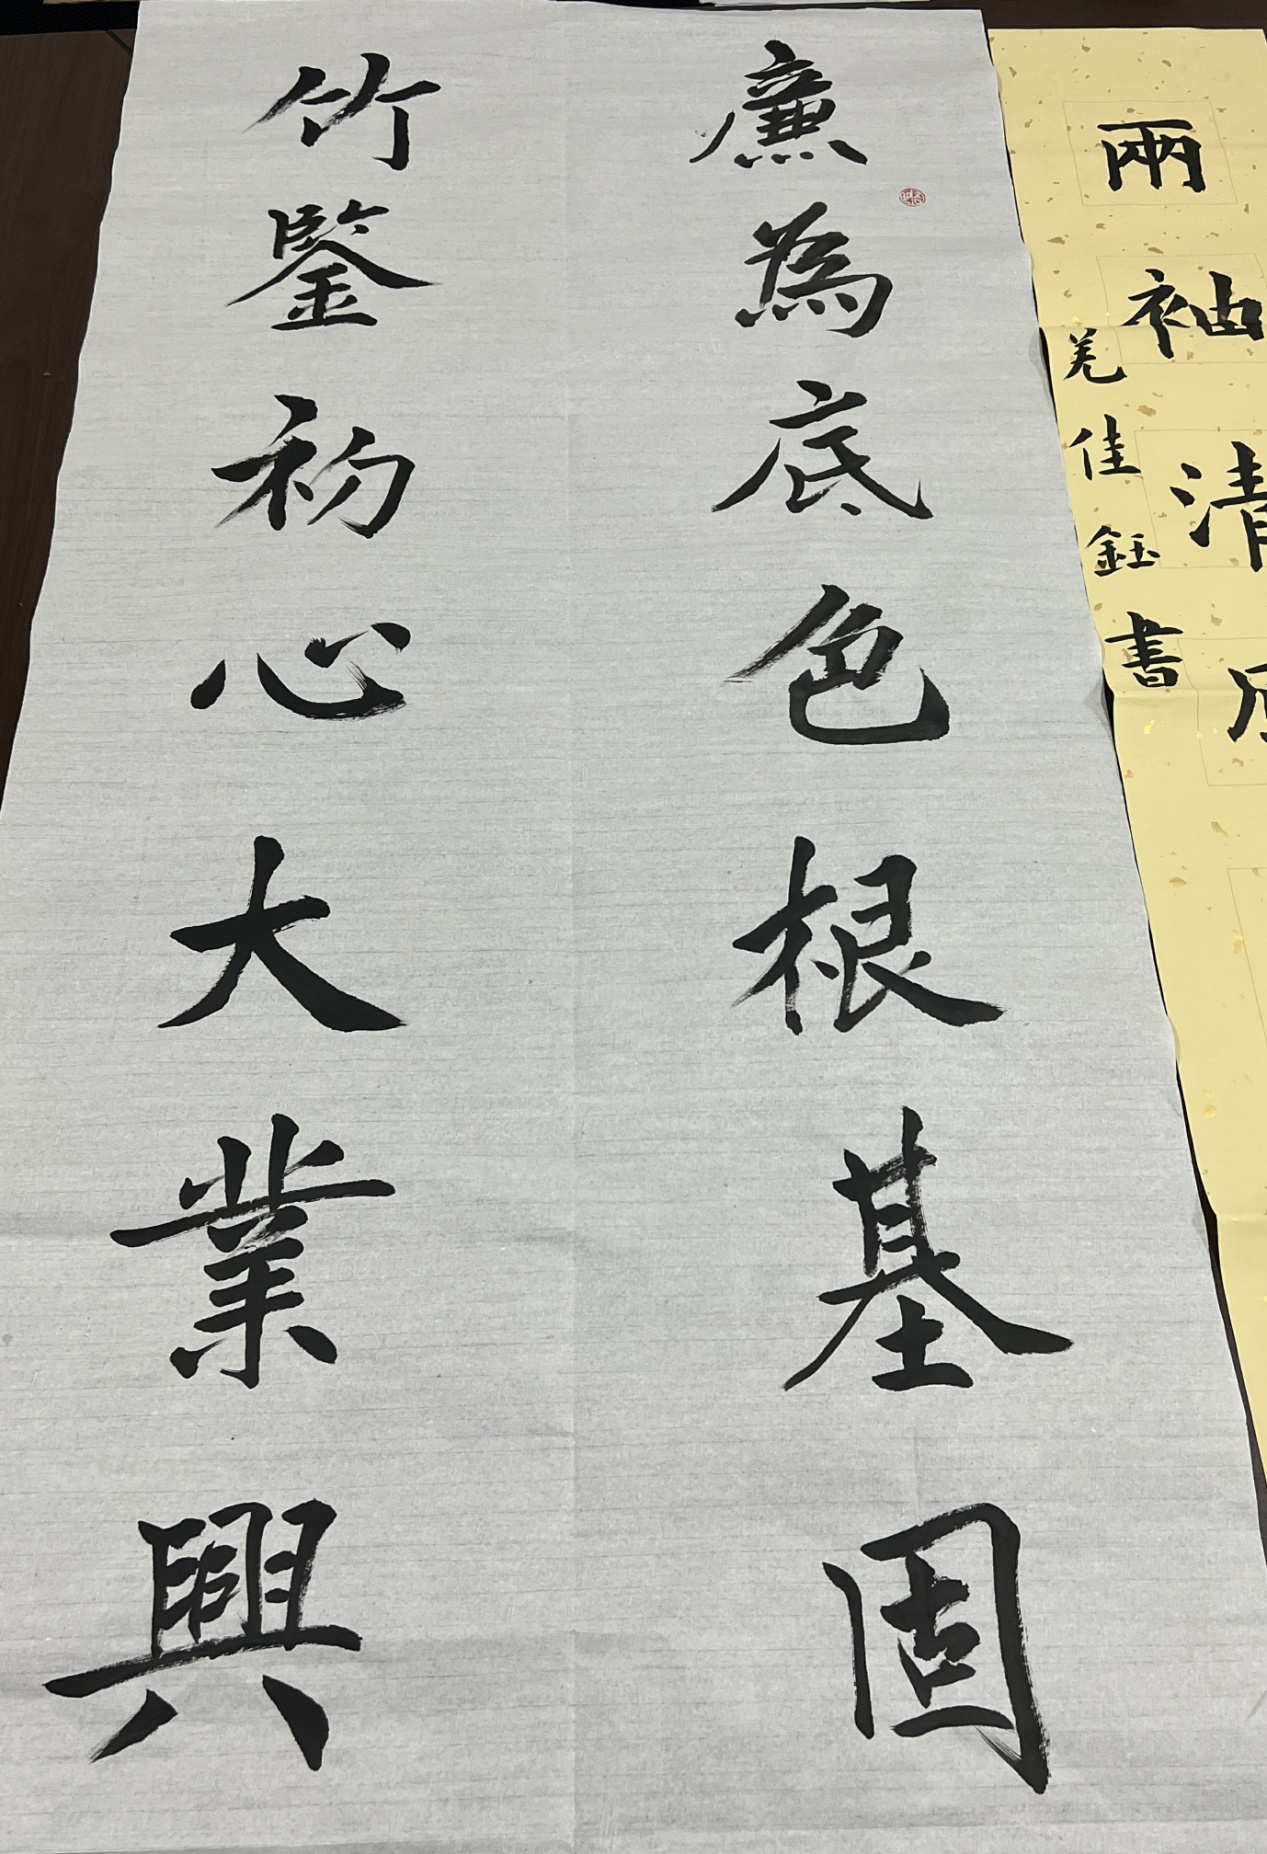 兩袖清
羌佳鈺書
廉為底色根基固
竹鋻初心大業興